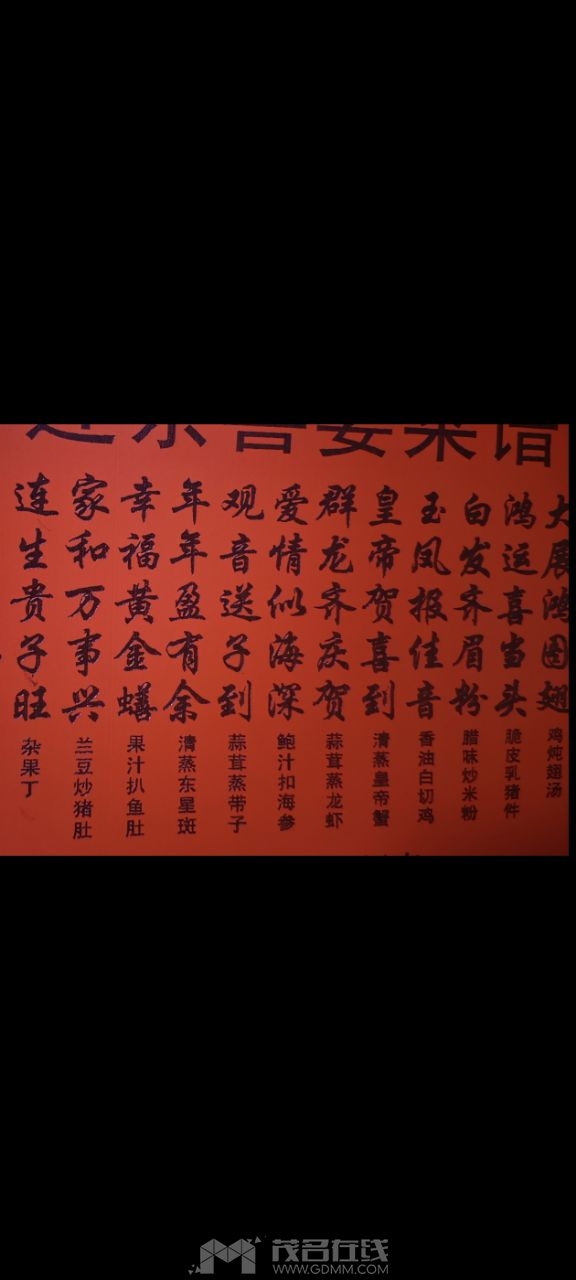 喜宴菜谱
大展鸿图翅
鸡炖翅汤
鸿运喜当头
脆皮乳猪件
白发齐眉粉
腊味炒米粉
玉凤报佳音
香油白切鸡
皇帝贺喜到
清蒸皇帝蟹
群龙齐庆贺
蒜茸蒸龙虾
爱情似海深
鲍汁扣海参
观音送子到
蒜茸蒸带子
年年盈有余
清蒸东星斑
幸福黄金蟮
果汁扒鱼肚
家和万事兴
兰豆炒猪肚
连生贵子旺
杂果丁
茂名在线
WWW.GDMM.COM